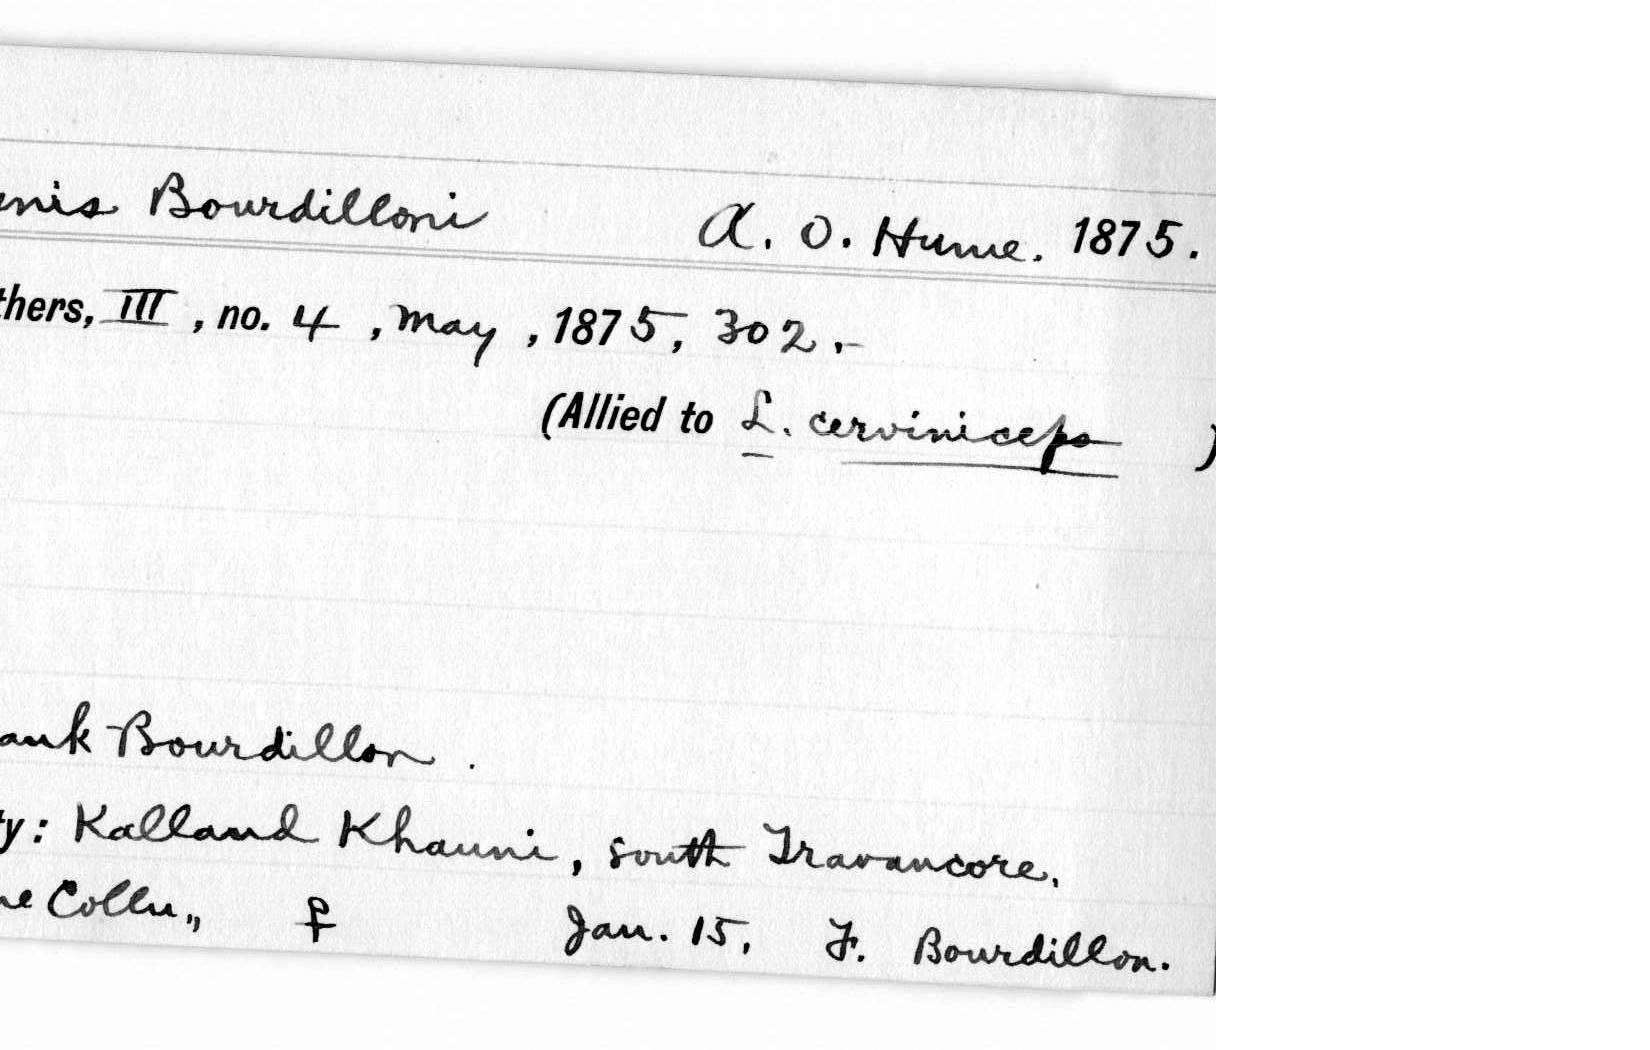 nis Bourdilloni A. O. Hume. 1875.
thers, III, no. 4, May, 1875, 302.-
(Allied to L. cerviniceps)
ank Bourdillon.
ty: Kalland Khauni, south Travancore.
ne Colln., ♀ Jan. 15, F. Bourdillon.